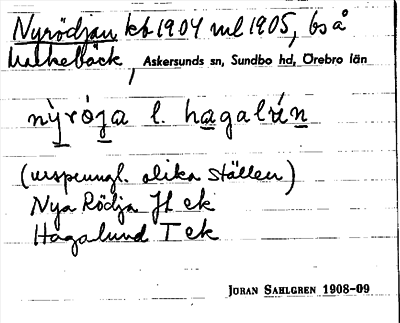 Nyrödjan kb 1904 ml 1905, bs å
Valkebäck, Askersunds sn, Sundbo hd, Örebro län
nỳrója l. hagalún
(urspungl. olika ställen)
Nya Rödja Jl ek
Hagalund T ek
JÖRAN SAHLGREN 1908-09